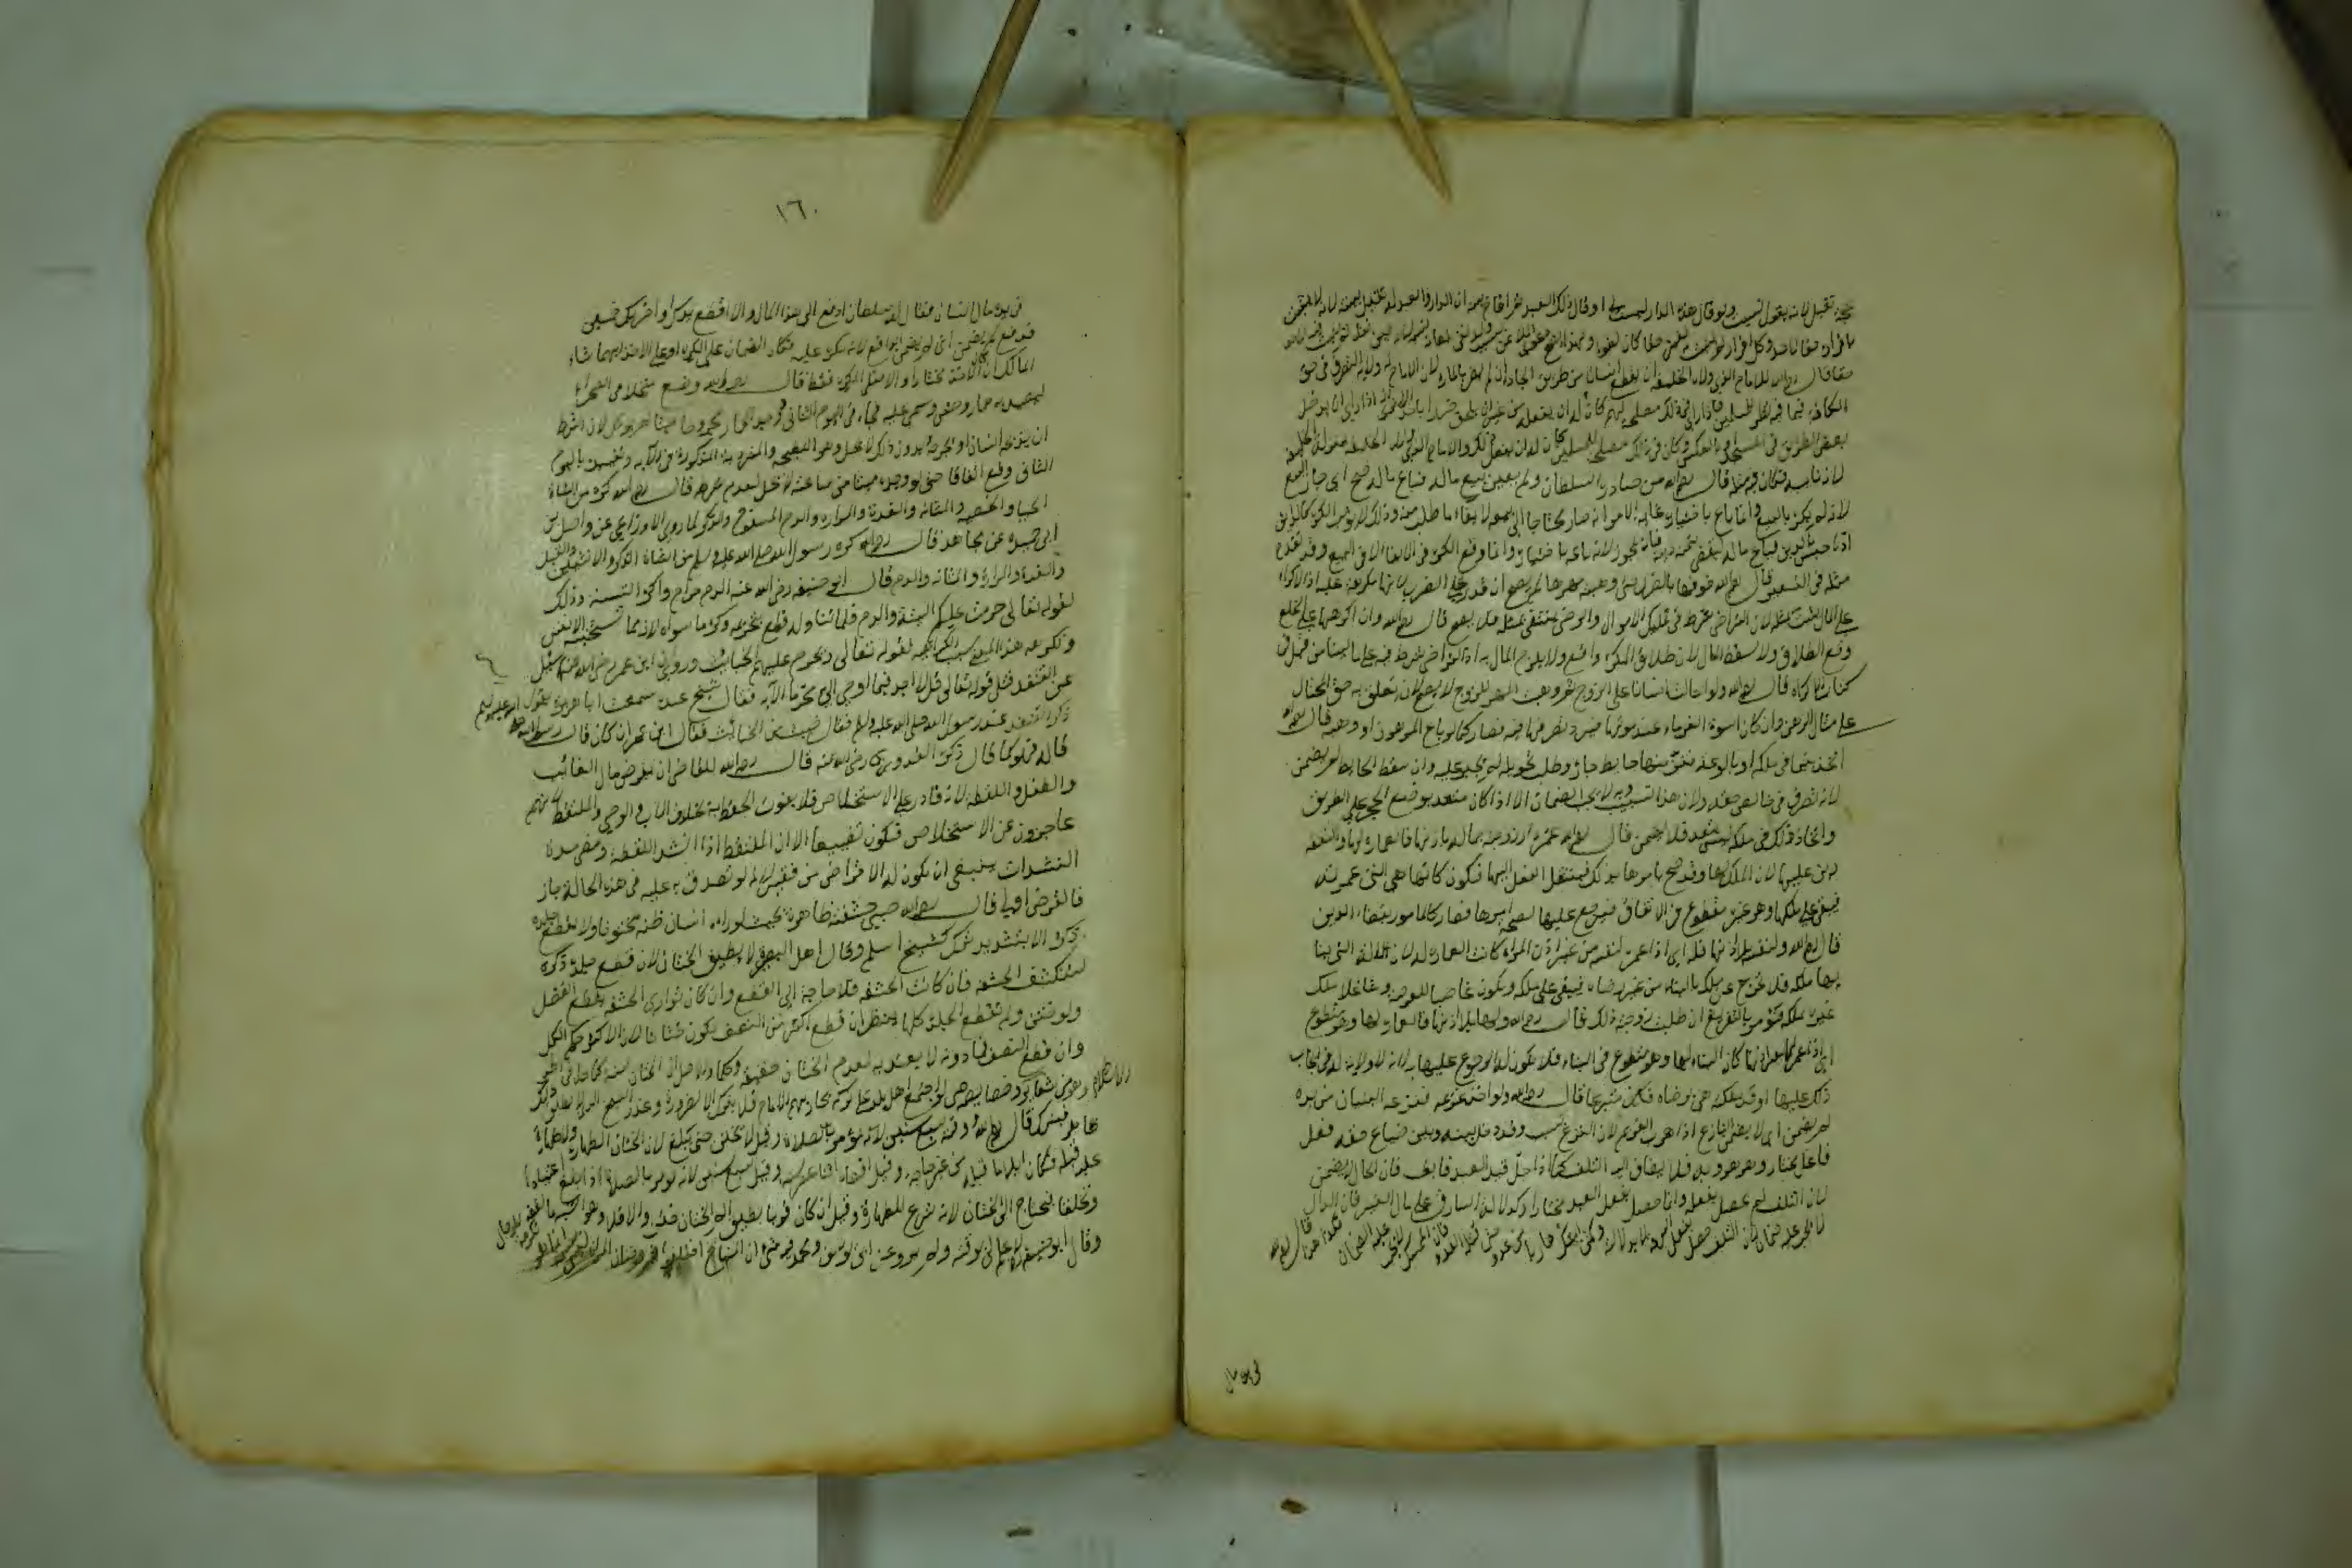 حجة تقبل لانه يقول نسيت ولو قال هذه الدار ليست لي او قال ذلك العبد ثم اقام بينة ان الدار والعبد له تقبل بينته لانه لم
باقراره حقا لاحد وكل اقرار لم يثبت لغيره حقا كان لغوا
حقا قال رحمه الله للامام الذي ولاه الخليفة ان يقطع انسانا من طريق الجادة ان لم يضر بالمارة لان للامام ولاية التصرف في حق
الكافة فيما فيه نظر للمسلمين فاذا راى في ذلك مصلحة لهم كان له ان يفعله من غير ان يلحق ضررا باحد الا ترى انه اذا راى ان يدخل
بعض الطريق في المسجد او بالعكس وكان في ذلك مصلحة للمسلمين كان له ان يفعل ذلك والامام الذي ولاه الخليفة بمنزلة الخليفة
لانه نائبه فكان مثله قال رحمه الله من صادره السلطان ولم يعين بيع ماله فباع ماله صح اي جاز البيع
لانه لم يكره بالبيع وانما باع باختياره غاية الامر انه صار محتاجا الى بيعه لايفاء ما طلب منه وذلك لا يوجب الكره كالدائن
اذا حبس بالدين فباع ماله ليقضي بثمنه دينه فانه يجوز لانه باعه باختياره وانما وقع الكره في الايفاء لا في البيع وقد تقدم
مثله في قال رحمه الله خوفها بالضرب حتى وهبته مهرها لم يصح ان قدر على الضرب لانها مكرهة عليه اذ الاكراه
على المال يثبت بمثله لان التراضي شرط في تمليك الاموال والرضى ينتفي بمثله فلا يصح قال رحمه الله وان اكرهها على الخلع
وقع الطلاق ولا يسقط المال لان طلاق المكره واقع ولا يلزم المال به اذ التراضي شرط فيه على ما بينا من قبل في
كتاب الاكراه قال رحمه الله ولو احالت انسانا على الزوج ثم وهبت المهر للزوج لا يصح لان تعلق به حق المحتال
على مثال الرهن وان كان اسوة الغرماء عند موتها فيرد تصرفها فيه فصار كما لو باع المرهون او وهبه قال رحمه الله
اتخذ بئرا في ملكه او بالوعة فنز منها حائط جاره وطلب تحويله لم يجبر عليه وان سقط الحائط لم يضمن
لانه تصرف في خالص حقه ولان هذا تسبيب وبه لا يجب الضمان الا اذا كان متعديا كوضع الحجر على الطريق
واتخاذ ذلك في ملكه ليس بتعد فلا يضمن قال رحمه الله عمر دار زوجته بماله باذنها فالعمارة لها والنفقة
دين عليها لان الملك لها وقد صح امرها بذلك فينتقل الفعل اليها فتكون كانها هي التي عمرته
فيبقى على ملكها وهو غير متطوع في الانفاق فيرجع عليها لصحة امرها فصار كالمامور بقضاء الدين
قال رحمه الله ولنفسه بلا اذنها فله اي اذا عمر لنفسه من غير اذن المراة كانت العمارة له لان الالة التي بنا
بها ملكه فلا تخرج عن ملكه بالبناء من غير رضاه فيبقى على ملكه ويكون غاصبا للعرصة وشاغلا ملك
غيره بملكه فيؤمر بالتفريغ ان طلبت زوجته ذلك قال رحمه الله ولها بلا اذنها فالعمارة لها وهو متطوع
اي اذا عمر لها بغير اذنها كان البناء لها وهو متطوع في البناء فلا يكون له الرجوع عليها به لانه لا ولاية له في ايجاب
ذلك عليها وقد ملكته هي برضاه فكان متبرعا قال رحمه الله ولو اخذ غريمه فنزعه انسان من يده
لم يضمن اي لا يضمن النازع اذا هرب الغريم لان النزع سبب وقد دخل بينه وبين ضياع حقه فعل
فاعل مختار وهو هروبه فلا يضاف اليه التلف كما اذا حل قيد العبد فابق فان الحال لا يضمن
لان التلف لم يحصل بفعله وانما حصل بفعل العبد مختارا وكدلالة السارق على مال الغير فان الدال
لا يجب عليه ضمان لان التلف حصل بفعل السارق لا بدلالته وكمن امسك هاربا من عدو حتى قتله العدو فان الممسك لا يجب عليه الضمان فكذا هذا قال رحمه الله
في يده مال
١٦٠
في يده مال انسان فقال له سلطان ادفع الي هذا المال والا اقطع يدك او اضربك خمسين
فدفع لم يضمن اي لم يضمن الدافع لانه مكره عليه فكان الضمان على المكره او على الاخذ ايهما شاء
المالك ان كان الاخذ مختارا والا فعلى المكره فقط قال رحمه الله وضع منجلا في الصحراء
ليصيد به حمار وحش وسمى عليه فجاء في اليوم الثاني فوجد الحمار مجروحا ميتا لم يوكل لان الشرط
ان يذبحه انسان او يجرحه وبدون ذلك لا يحل وهو كالنطيحة والمتردية المذكورة في الاية وتقييده باليوم
الثاني وقع اتفاقا حتى لو وجده ميتا من ساعته لا يحل لعدم شرطه قال رحمه الله كره من الشاة
الحيا والخصية والمثانة والغدة والمرارة والدم المسفوح والذكر لما روى الاوزاعي عن واصل بن
ابي جميلة عن مجاهد قال كره رسول الله صلى الله عليه وسلم من الشاة الذكر والانثيين والقبل
والغدة والمرارة والمثانة والدم قال ابو حنيفة رضي الله عنه الدم حرام واكره الستة وذلك
لقوله تعالى حرمت عليكم الميتة والدم فلما تناوله قطع بتحريمه وكره ما سواه لانه مما تستخبثه الانفس
وتكرهه هذا المعنى سبب الكراهية لقوله تعالى ويحرم عليهم الخبائث وروي ان ابن عمر رضي الله عنهما سئل
عن القنفذ فتلى قوله تعالى قل لا اجد فيما اوحي الي محرما الاية فقال شيخ عنده سمعت ابا هريرة يقول
ذكر القنفذ عند رسول الله صلى الله عليه وسلم فقال خبيث من الخبائث فقال ابن عمر ان كان قال رسول الله صلى الله عليه وسلم
قاله فهو كما قال ذكره القدوري رحمه الله قال رحمه الله للقاضي ان يقرض مال الغائب
والطفل واللقطة لانه قادر على الاستخلاص فلا يفوت الحفظ به بخلاف الاب والوصي والملتقط لانهم
عاجزون عن الاستخلاص فيكون تضييعا الا ان الملتقط اذا انشد اللقطة ومضى مدة
النشدان ينبغي ان يكون له الاقراض من فقير لانه لو تصدق به عليه في هذه الحالة جاز
فالقرض اولى قال رحمه الله صبي حشفته ظاهرة بحيث لو راه انسان ظنه مختونا ولا يقطع جلدة
ذكره الا بتشديد ترك كشيخ اسلم وقال اهل البصر لا يطيق الختان لان قطع جلدة ذكره
لتنكشف الحشفة فان كانت الحشفة فلا حاجة الى القطع وان كان توارى الحشفة يقطع الفضل
ولو ختن ولم تقطع الجلدة كلها ينظر ان قطع اكثر من النصف يكون ختانا لان للاكثر حكم الكل
وان قطع النصف فما دونه لا يعتد به لعدم الختان حقيقة وحكما والاصل ان الختان سنة كما جاء في الخبر
وهو من شعائر الاسلام وخصائصه حتى لو اجتمع اهل بلد على تركه يحاربهم الامام فلا يترك الا لضرورة وعذر الشيخ الذي لا يطيق ذلك
ظاهر فيترك قال رحمه الله ووقته سبع سنين لانه يؤمر بالصلاة وقيل لا يختن حتى يبلغ لان الختان للطهارة ولا طهارة
عليه قبله فكان ايلاما قبله من غير حاجة وقيل اقصاه اثنا عشر سنة وقيل تسع سنين لانه يؤمر بالصلاة اذا بلغ عشرا
وتخلقا فيحتاج الى الختان لانه شرع للطهارة وقيل ان كان قويا يطيق الم الختان ختن والا فلا وهو اشبه بالفقه
وقال ابو حنيفة لا علم لي بوقته ولم يرو عن ابي يوسف ومحمد فيه شيء